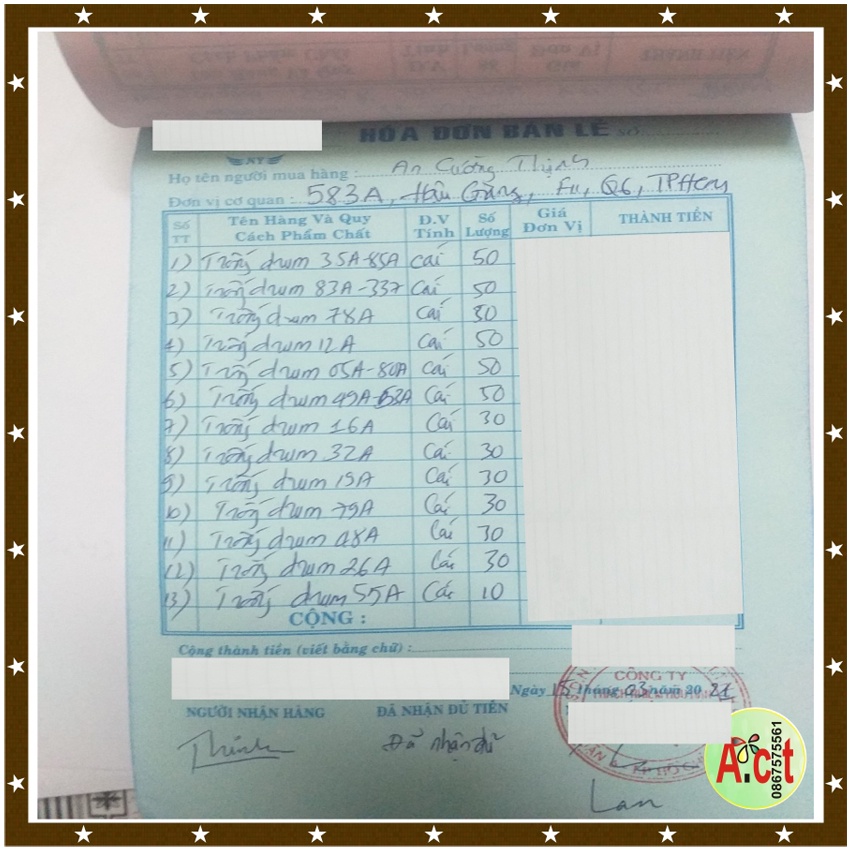 HÓA ĐƠN BÁN LẺ SỐ
NY
Họ tên người mua hàng : An Cường Thịnh
Đơn vị cơ quan : 583A, Hậu Giang, F11, Q6, TPHCM
Số TT Tên Hàng Và Quy Cách Phẩm Chất Đ.V Tính Số Lượng Giá Đơn Vị THÀNH TIỀN
1) Trống drum 35A-85A Cái 50
2) Trống drum 83A-337 Cái 50
3) Trống drum 78A Cái 30
4) Trống drum 12A Cái 50
5) Trống drum 05A-80A Cái 50
6) Trống drum 49A-53A Cái 50
7) Trống drum 16A Cái 30
8) Trống drum 32A Cái 30
9) Trống drum 19A Cái 30
10) Trống drum 79A Cái 30
11) Trống drum 48A Cái 30
12) Trống drum 26A Cái 30
13) Trống drum 55A Cái 10
CỘNG :
Cộng thành tiền (viết bằng chữ) :
Ngày 15 tháng 03 năm 20
NGƯỜI NHẬN HÀNG ĐÃ NHẬN ĐỦ TIỀN
CÔNG TY
Thính Đã nhận đủ
Lan
A.ct
0867575561